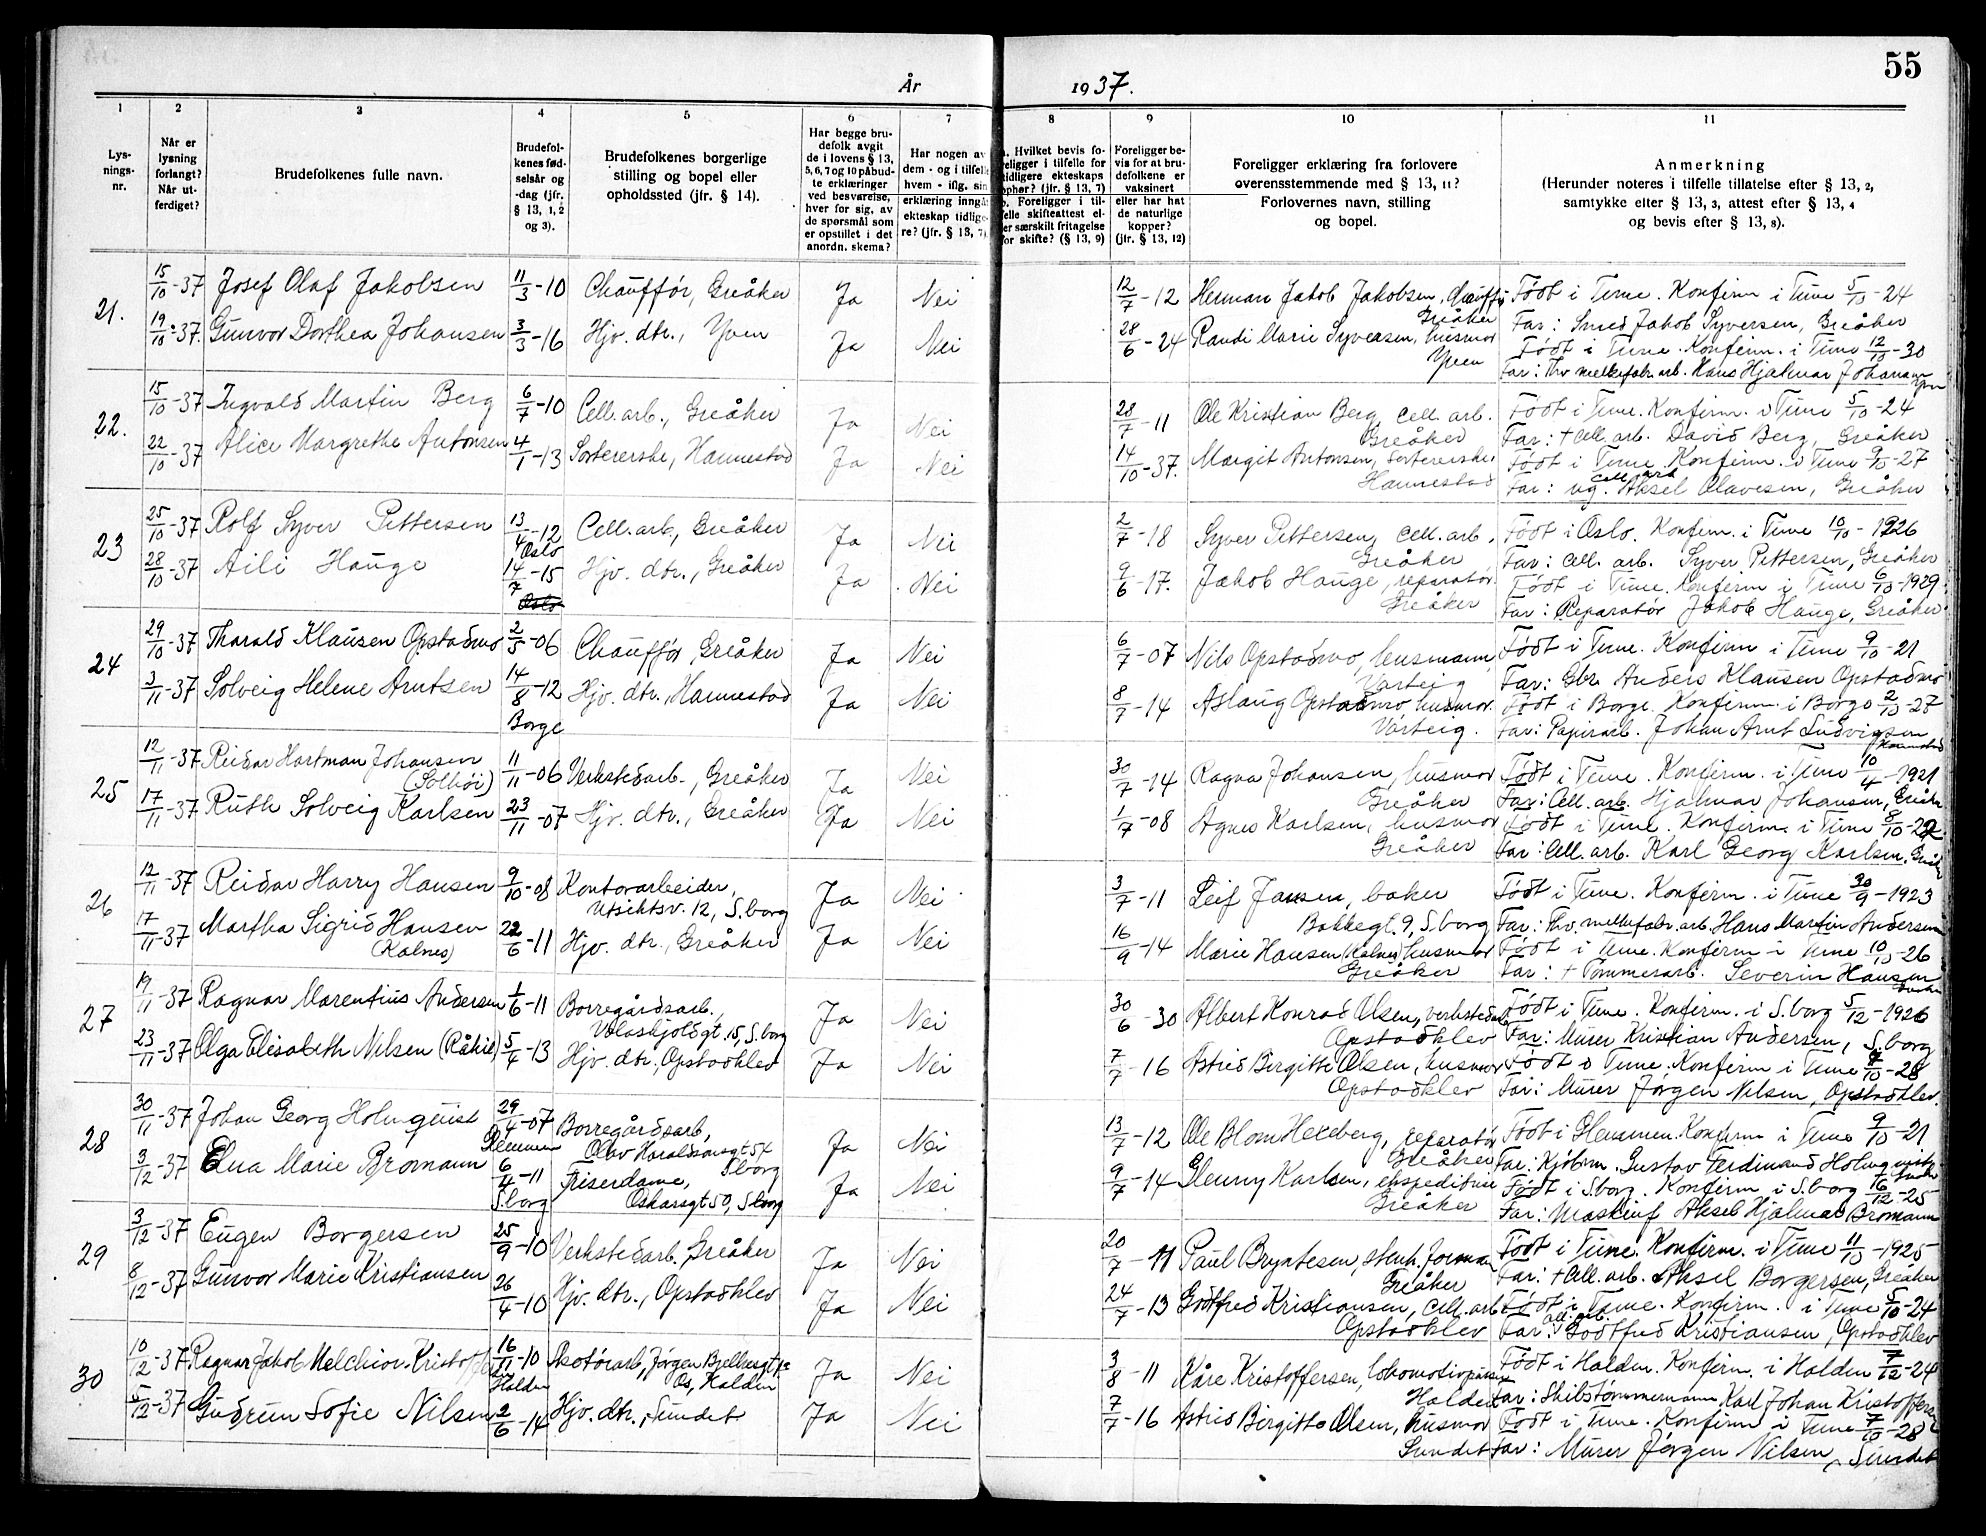 55
År 1937.
1 2 3 4 5 6 7 8 9 10 11
Lys-
nings-
nr.
Når er
lysning
forlangt?
Når ut-
ferdiget?
Brudefolkenes fulle navn.
Brudefol-
kenes fød-
selsår og
-dag (jfr.
§ 13, 1, 2
og 3).
Brudefolkenes borgerlige
stilling og bopel eller
opholdssted (jfr. § 14).
Har begge bru-
defolk avgit
de i lovens § 13,
5, 6, 7 og 10 påbud-
te erklæringer
ved besvarelse,
hver for sig, av
de spørsmål som
er opstillet i det
anordn. skema?
Har nogen av
dem - og i tilfelle
hvem - iflg. sin
erklæring inngå
ekteskap tidlige-
re? (jfr. § 13, 7)
. Hvilket bevis fo-
religger i tilfelle for
tidligere ekteskaps
ophør? (jfr. § 13, 7)
. Foreligger i til-
felle skifteattest el-
er særskilt fritagelse
for skifte? (§ 13, 9)
Foreligger be-
vis for at bru-
defolkene er
vaksinert
eller har hat
de naturlige
kopper?
(jfr. § 13, 12)
Foreligger erklæring fra forlovere
overensstemmende med § 13, 11?
Forlovernes navn, stilling
og bopel.
Anmerkning
(Herunder noteres i tilfelle tillatelse efter § 13, 2,
samtykke efter § 13, 3, attest efter § 13, 4
og bevis efter § 13, 8).
21.
15/10-37 Josef Olaf Jakobsen 11/3-10 Chauffør, Greåker Ja Nei 12/7-12 Herman Jakob Jakobsen, Chauffør Født i Tune. Konfirm i Tune 5/10-24
Greåker Far: Smed Jakob Syversen, Greåker
19/10-37. Gunvor Dorthea Johansen 3/3-16 Hjv. dtr., Yven Ja Nei 28/6-24 Randi Marie Syversen, husmor Født i Tune. Konfirm. i Tune 12/10-30
Yven Far: Thv mellefabr. arb. Hans Hjalmar Johansen Yven
22.
15/10-37 Ingvald Martin Berg 6/7-10 Cell. arb., Greåker Ja Nei 28/7-11 Ole Kristian Berg, cell. arb. Født i Tune. Konfirm. i Tune 5/10-24
Greåker Far: + cell. arb. David Berg, Greåker
22/10-37 Alice Margrethe Antonsen 4/1-13 Sortererske, Hannestad Ja Nei 14/10-37. Margit Antonsen, sortererske Født i Tune. Konfirm. i Tune 9/10-27
Hannestad Far: ug. cell. arb Aksel Olavesen, Greåker
23
25/10-37 Rolf Syver Pettersen 13/4-12 Oslo Cell. arb, Greåker Ja Nei 2/7-18 Syver Pettersen, cell. arb, Født i Oslo. Konfirm. i Tune 10/10-1926
Greåker Far: cell. arb. Syver Pettersen, Greåker
28/10-37 Aili Hauge 14/7-15 Oslo Hjv. dtr., Greåker Ja Nei 9/6-17. Jakob Hauge, reparatør Født i Tune. Konfirm i Tune 6/10-1929
Greåker Far: Reparatør Jakob Hauge, Greåker
24
29/10-37 Tharald Klausen Opstadmo 2/5-06 Chauffør, Greåker Ja Nei 6/7-07 Nils Opstadmo, husmann Født i Tune. Konfirm i Tune 9/10-21
Varteig Far: Gbr Anders Klausen Opstadmo
3/11-37 Solveig Helene Arntsen 14/8-12 Borge Hjv. dtr., Hannestad Ja Nei 8/7-14 Aslaug Opstadmo, husmor Født i Borge. Konfirm. i Borge 2/10-27
Varteig. Far: Papirarb. Johan Arnt Ludvigsen Hannestad
25
12/11-37 Reidar Hartman Johansen 11/11-06 Verkstedarb., Greåker Ja Nei 30/7-14 Ragna Johansen, husmor Født i Tune. Konfirm. i Tune 10/4-1921
(Solhøi) Greåker Far: Cell. arb. Hjalmar Johansen, Greåker
17/11-37 Ruth Solveig Karlsen 23/11-07 Hjv. dtr., Greåker Ja Nei 1/7-08 Agnes Karlsen, husmor Født i Tune. Konfirm. i Tune 8/10-22
Greåker Far: Cell. arb. Karl Georg Karlsen, Greåker
26
12/11-37 Reidar Harry Hansen 9/10-08 Kontorarbeider, Ja Nei 3/7-11 Leif Jansen, baker Født i Tune. Konfirm. i Tune 30/9-1923
Utsiktsv. 12, S.borg Bakkegt. 9, S.borg Far: Thv. mellefabr. arb. Hans Martin Andersen
17/11-37 Martha Sigrid Hansen 22/6-11 Hjv. dtr., Greåker Ja Nei 16/9-14 Marie Hansen (Kalnes) husmor Født i Tune. Konfirm i Tune 10/10-26
(Kalnes) Greåker Far: + Tømmerarb. Severin Hansen
27
19/11-37 Ragnar Marentius Andersen 1/6-11 Borregårdsarb., Ja Nei 30/6-30 Albert Konrad Olsen, verkstedarb Født i Tune. Konfirm. i S.borg 5/12-1926
Valaskjoldgt. 15, S.borg Opstadklev Far: Murer Kristian Andersen, S.borg
23/11-37 Olga Elisabeth Nilsen (Råkil) 5/4-13 Hjv. dtr. Opstadklev Ja Nei 7/7-16 Astrid Birgitte Olsen, husmor Født i Tune. Konfirm i Tune 7/10-28
Opstadklev Far: Murer Jørgen Nilsen, Opstadklev.
28
30/11-37 Johan Georg Holmquist 29/4-07 Glemmen Borregårdsarb, Ja Nei 13/7-12 Ole Blom Hexeberg, reparatør Født i Glemmen. Konfirm i Tune 9/10-21
Olav Haraldsonsgt 54 S.borg Greåker Far: Kjøbm. Gustav Ferdinand Holmquist
3/12-37 Elna Marie Bromann 6/4-11 S.borg Friserdame, Ja Nei 9/7-14 Glenny Karlsen, ekspeditrise Født i S.borg. Konfirm i S.borg 16/12-25
Oskarsgt 50, S.borg Greåker Far: Maskinf Aksel Hjalmar Bromann
29
3/12-37 Eugen Borgersen 25/9-10 Verkstedarb., Greåker Ja Nei 20/7-11 Paul Bryntesen, stenh. forman Født i Tune. Konfirm. i Tune 11/10-1925
Greåker Far: + Cell. arb. Aksel Borgersen, Greåker
8/12-37 Gunvor Marie Kristiansen 26/4-10 Hjv. dtr., Opstadklev Ja Nei 24/7-13 Godtfred Kristiansen, cell. arb Født i Tune. Konfirm. i Tune 5/10-24
Opstadklev Far: cell. arb. Godtfred Kristiansen, Opstadklev
30
10/12-37 Ragnar Jakob Melchior Kristoffersen 16/11-10 Halden Skotøiarb, Jørgen Bjelkesgt Ja Nei 3/8-11 Kåre Kristoffersen, lokomotivpusser Født i Halden. Konfirm. i Halden 7/12-24
Os, Halden Halden Far: Skibstømmermann Karl Johan Kristoffersen
5/12-37 Gudrun Sofie Nilsen 2/6-14 Hjv. dtr., Sundet Ja Nei 7/7-16 Astrid Birgitte Olsen, husmor Født i Tune. Konfirm i Tune 7/10-28
Sundet Far: Murer Jørgen Nilsen, Sundet